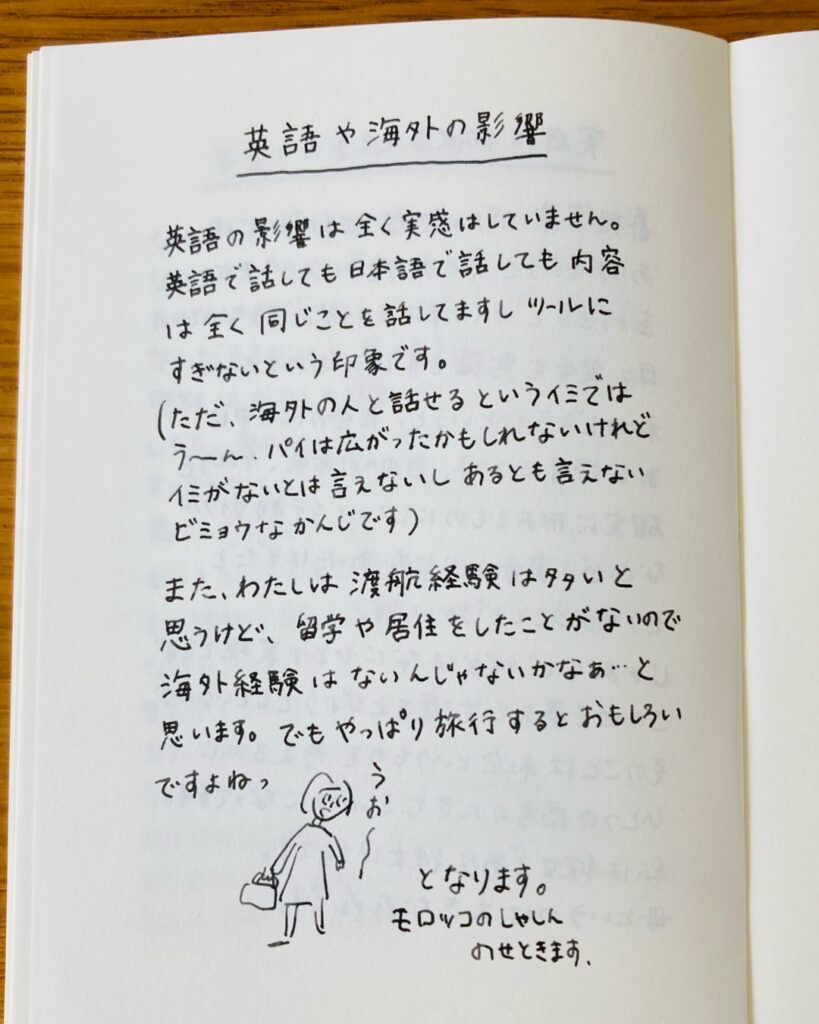 英語や海外の影響
英語の影響は全く実感はしていません。
英語で話しても日本語で話しても内容
は全く同じことを話してますしツールに
すぎないという印象です。
(ただ、海外の人と話せるというイミでは
う〜ん、パイは広がったかもしれないけれど
イミがないとは言えないしあるとも言えない
ビミョウなかんじです)
また、わたしは渡航経験は多いと
思うけど、留学や居住をしたことがないので
海外経験はないんじゃないかなぁ…と
思います。でもやっぱり旅行するとおもしろい
ですよねっ
うお〜
となります。
モロッコのしゃしん
のせときます、